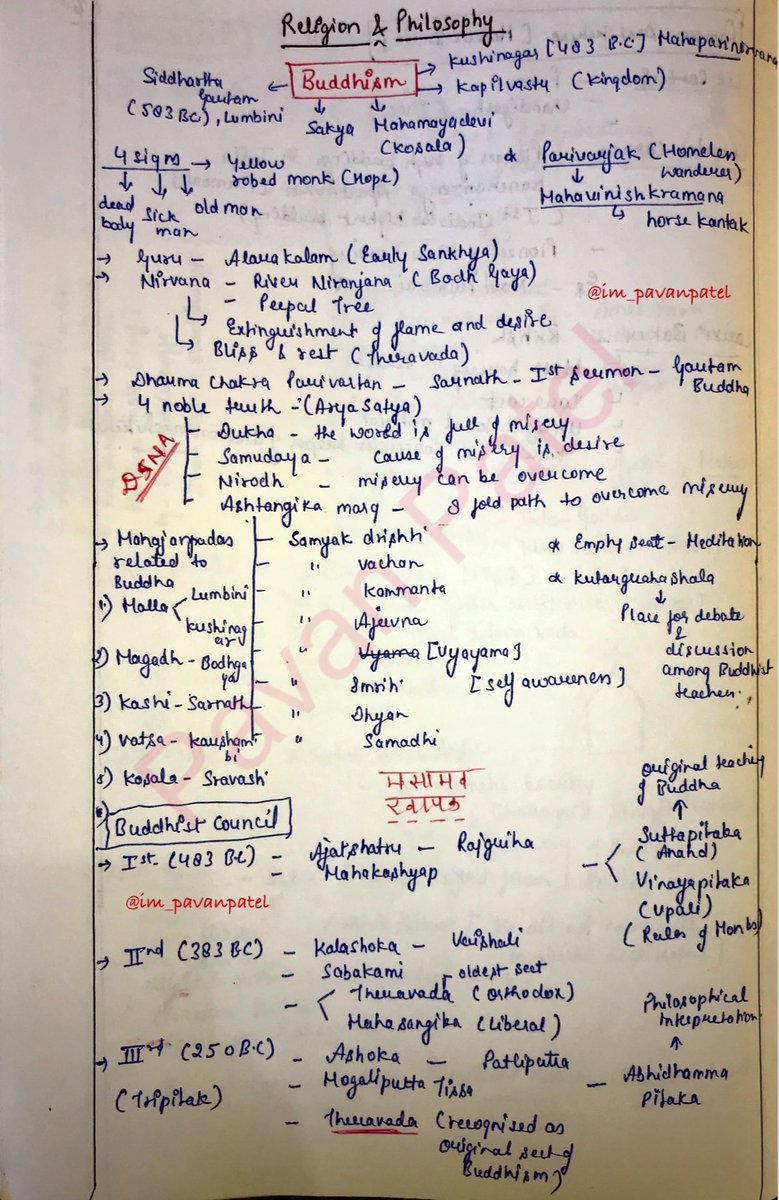 Religion & Philosophy
Buddhism
Kushinagar [483 B.C] Mahaparinirvana
Kapilvastu (Kingdom)
Siddhartha
Gautam
(583 BC), Lumbini
Sakya
Mahamayadevi
(Kosala)
4 signs → Yellow
robed monk (Hope)
dead
body
sick
man
old man
Parivarjak (Homeless
wanderer)
Mahavinishkramana
horse Kantak
→ Guru - Alarakalam (Early Sankhya)
→ Nirvana - River Niranjana (Bodh Gaya)
- Peepal Tree
Extinguishment of flame and desire
Bliss & rest (Theravada)
@im_pavanpatel
→ Dharma Chakra Parivartan - Sarnath - Ist sermon - Gautam
Buddha
→ 4 noble truth - (Arya Satya)
DSNA
Dukha - the world is full of misery
Samudaya - cause of misery is desire
Nirodh - misery can be overcome
Ashtangika marg - 8 fold path to overcome misery
→ Mahajanpadas
related to
Buddha
1) Malla
Lumbini
Kushinagar
2) Magadh - Bodhgaya
3) Kashi - Sarnath
4) Vatsa - Kaushambi
5) Kosala - Sravasti
Samyak drishti
" vachan
" Kammanta
" Ajeevna
" Vyama [Vyayama]
" Smriti [self awareness]
" Dhyan
" Samadhi
Empty seat - Meditation
Kutargahashala
Place for debate
&
discussion
among Buddhist
teachers.
मसामव
रवापक
Buddhist Council
→ Ist (483 BC) - Ajatshatru - Rajgriha
- Mahakashyap
original teaching
of Buddha
Suttapitaka
(Anand)
Vinayapitaka
(Upali)
(Rules of Monks)
@im_pavanpatel
→ IInd (383 BC) - Kalashoka - Vaishali
- Sabakami
oldest sect
Theravada (orthodox)
Mahasangika (Liberal)
→ IIIrd (250 B.C) - Ashoka - Patliputra
(Tripitak)
- Mogaliputta Tissa
- Abhidhamma
Pitaka
Philosophical
Interpretation
- Theravada (recognised as
original sect of
Buddhism)
Pavan Patel